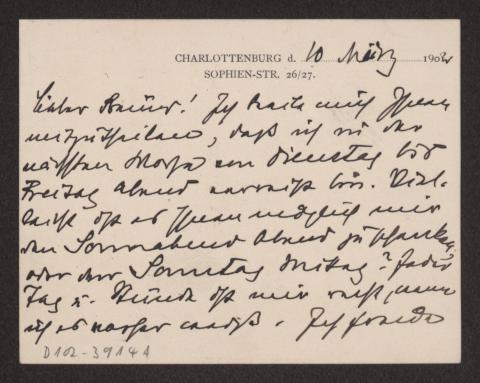 CHARLOTTENBURG d. 10 März 1902
SOPHIEN-STR. 26/27.
Lieber Freund! Ich beeile mich Ihnen
mitzutheilen, daß ich in der
nächsten Woche von Dienstag bis
Freitag Abend verreist bin. Viel-
leicht ist es Ihnen möglich mir
den Sonnabend Abend zu schenken,
oder den Sonntag Mittag? Jeder
Tag u. Stunde ist mir recht, wenn
ich es vorher weiß. Ich
D102-3914A